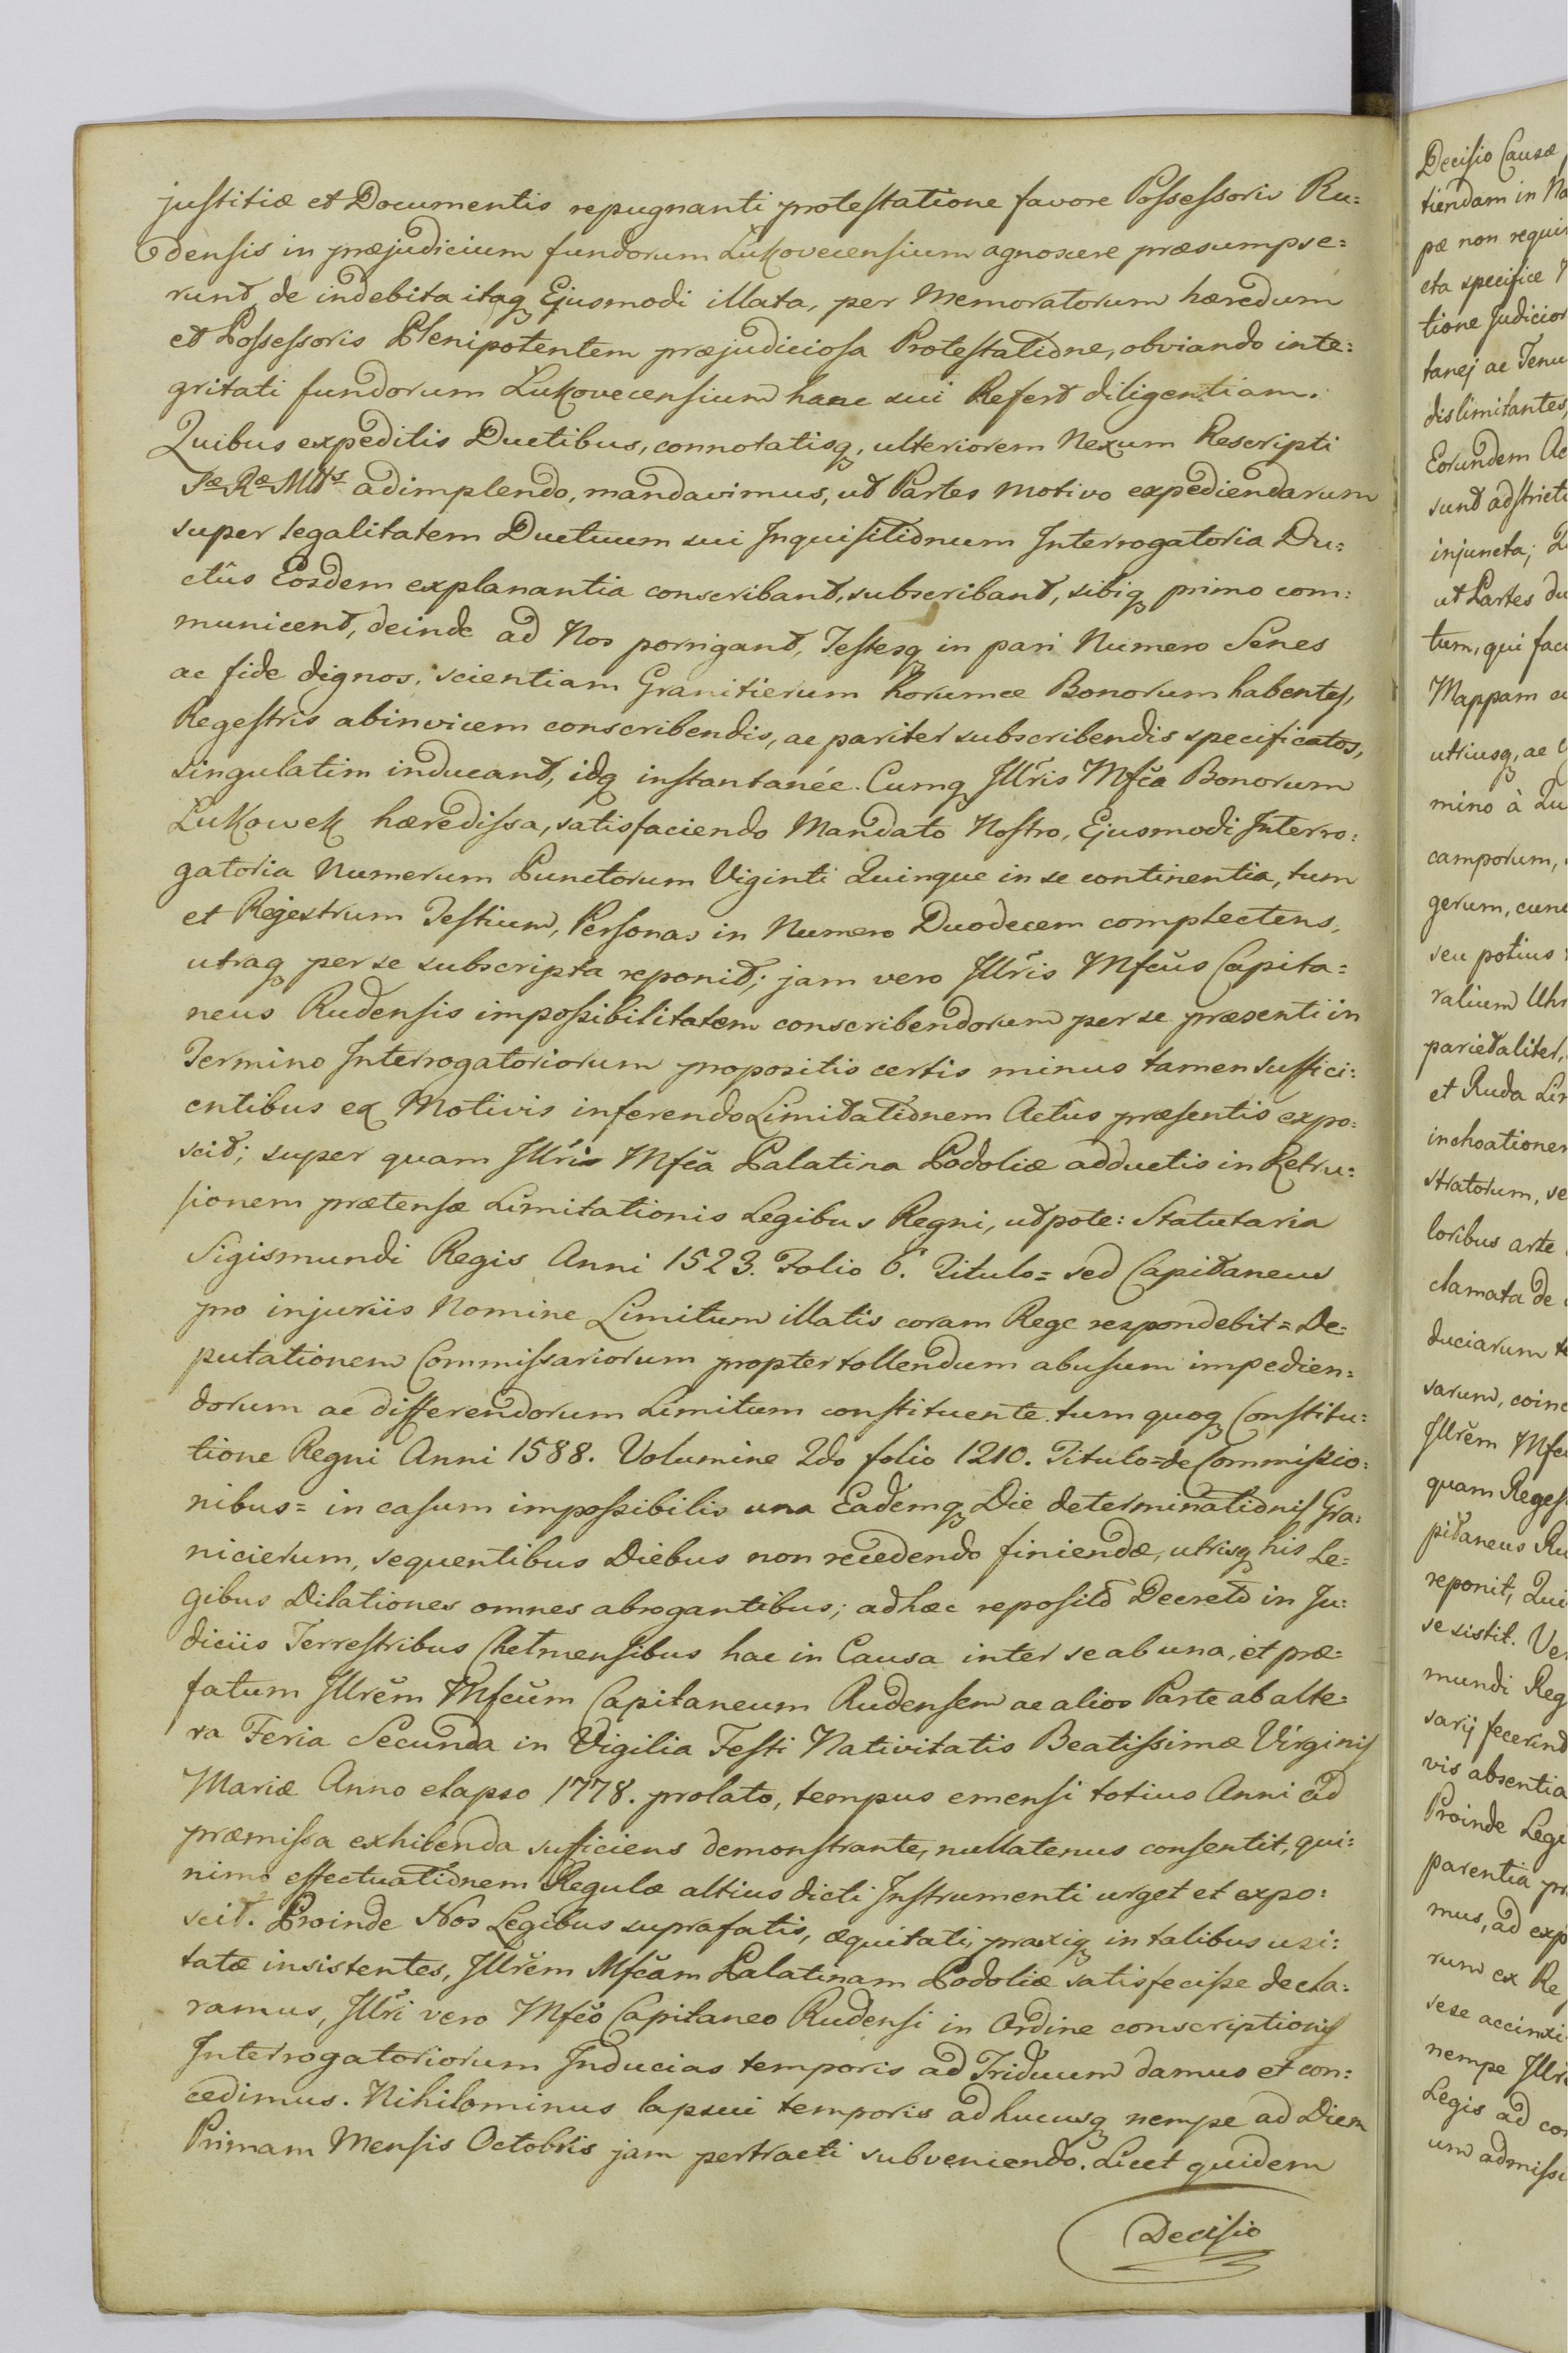 justitiæ et Documentis repugnanti protestatione favore Possessoris Ru=
densis in præjudicium fundorum Lukovecensium agnoscere præsumpse=
runt, de indebita itaq Ejusmodi illata, per Memoratorum hæredum
et Possessoris Plenipotentem præjudiciosa Protestatione, obviando inte=
gritati fundorum Lukovecensium hanc sui Refert diligentiam.
Quibus expeditis Ductibus, connotatisq, ulteriorem Nexum Rescripti
Sæ Ræ Mtts adimplendo, mandavimus, ut Partes motivo expediendarum
super legalitatem Ductuum sui Inquisitionum Interrogatoria Du=
ctûs Eosdem explanantia conscribant, subscribant, sibiq primo com=
municent, deinde ad Nos porrigant, Testesq in pari Numero Senes
ac fide dignos, scientiam Granitierum horumce Bonorum habentes,
Regestris abinvicem conscribendis, ac pariter subscribendis specificatos,
singulatim inducant, idq instantanée. Cumq Illris Mfca Bonorum
Lukowek hæredissa, satisfaciendo Mandato Nostro, Ejusmodi Interro=
gatoria Numerum Punctorum Viginti Quinque in se continentia, tum
et Regestrum Testium, Personas in Numero Duodecem complectens,
utraq per se subscripta reponit; jam vero Illris Mfcus Capita=
neus Rudensis impossibilitatem conscribendorum per se præsenti in
Termino Interrogatoriorum propositis certis minus tamen suffici=
entibus ex Motivis inferendo Limitationem Actûs præsentis expo=
scit; super quam Illris Mfca Palatina Podoliæ adductis in Retru=
sionem prætensæ Limitationis Legibus Regni, utpote: Statutaria
Sigismundi Regis Anni 1523. Folio 6. Titulo= sed Capitaneus
pro injuriis Nomine Limitum illatis coram Rege respondebit= De=
putationem Commissariorum propter tollendum abusum impedien=
dorum ac differendorum Limitum constituente. tum quoq Constitu=
tione Regni Anni 1588. Volumine 2do folio 1210. Titulo= de Commissio=
nibus= in casum impossibilis una Eademq Die determinationis Gra=
nicierum, sequentibus Diebus non recedendo finiendæ, utrisq his Le=
gibus Dilationes omnes abrogantibus; adhæc reposito Decreto in Ju=
diciis Terrestribus Chelmensibus hac in Causa inter se ab una, et præ=
fatum Illrem Mfcum Capitaneum Rudensem ac alios Parte ab alte=
ra Feria Secunda in Vigilia Festi Nativitatis Beatissimæ Virginis
Mariæ Anno elapso 1778. prolato, tempus emensi totius Anni ad
præmissa exhibenda sufficiens demonstrante, nullatenus consentit, qui=
nimo effectuationem Regulæ altius dicti Instrumenti urget et expo=
scit. Proinde Nos Legibus suprafatis, æquitati, praxiq in talibus usi=
tatæ insistentes, Illrem Mfcam Palatinam Podoliæ satisfecisse decla=
ramus, Illri vero Mfco Capitaneo Rudensi in Ordine conscriptionis
Interrogatoriorum Inducias temporis ad Triduum damus et con=
cedimus. Nihilominus lapsui temporis adhucusq nempe ad Diem
Primam Mensis Octobris jam pertracti subveniendo. Licet quidem
Decisio
Decisio Causæ
tiendam in
pæ non
eta specifice
tione Judicior
tanej ac Tenu
dislimitantes
Eorundem Ac
sunt adstricti
injuncta;
ut Partes du
tum, qui fac
Mappam
utriusq, ac
mino à
camporum,
gerum, cun
seu potius
ralium
parietaliter,
et Ruda Li
inchoationem
stratorum, se
loribus arte
clamata de
duciarum
sarum, coin
Illrem Mfc
quam Regest
pitaneus Ru
reponit, Qui
se sistit. Ve
mundi Reg
sarij fecerint
vis absentia
Proinde Leg
parentia pr
mus, ad exp
rum ex Re
sese accinxi
nempe Illr
Legis ad co
um admiss